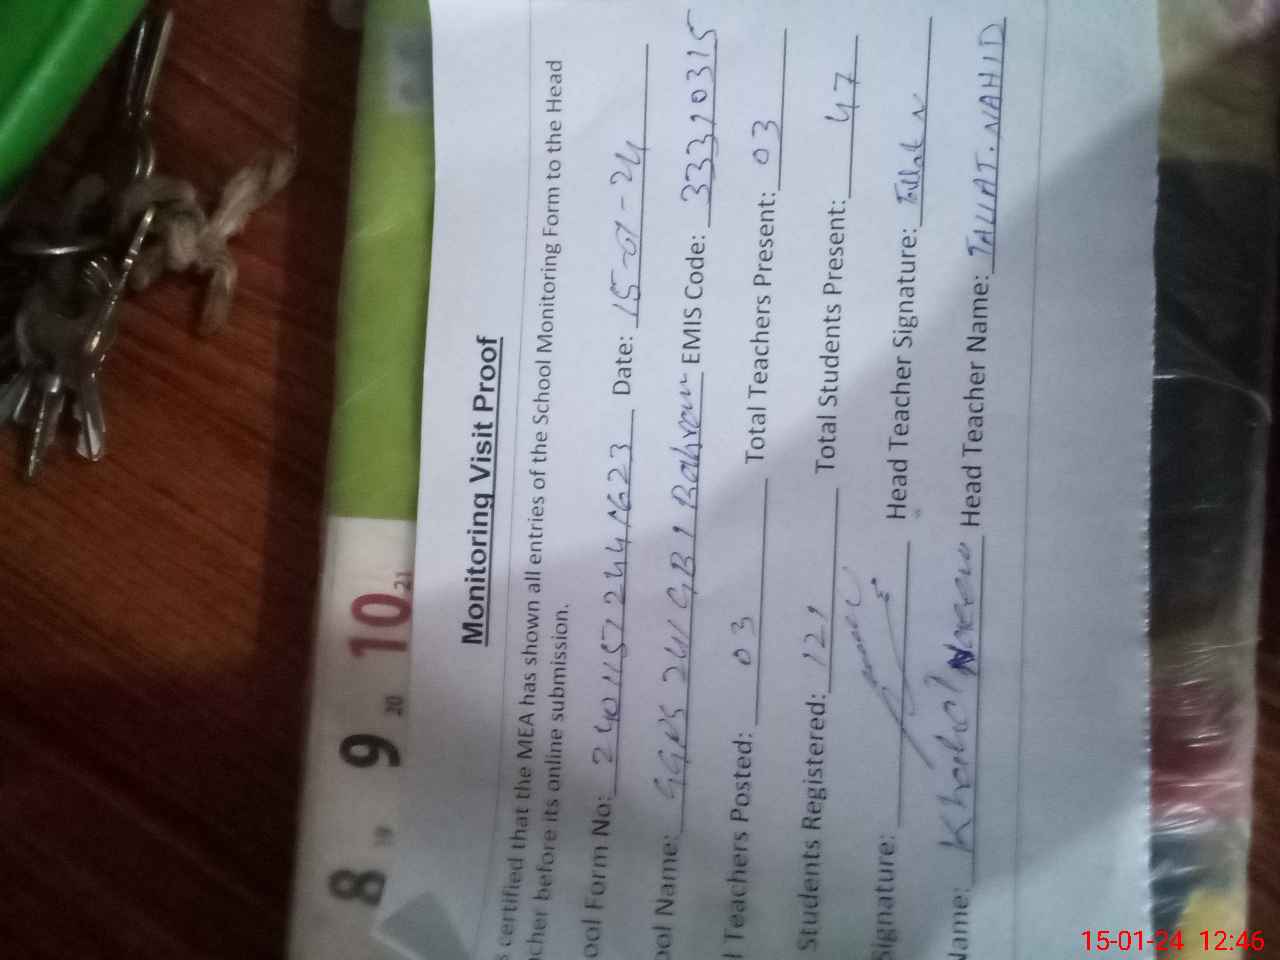 Monitoring Visit Proof
certified that the MEA has shown all entries of the School Monitoring Form to the Head
cher before its online submission.
ool Form No: 24011572441623 Date: 15-01-24
ool Name: GGPS 241 GB 1 EMIS Code: 33320315
l Teachers Posted: 03 Total Teachers Present: 03
Students Registered: 121 Total Students Present: 47
Signature: Head Teacher Signature:
Name: Khalid Head Teacher Name: TALLAT. NAHID
8 19 9 20 10 21
15-01-24 12:46